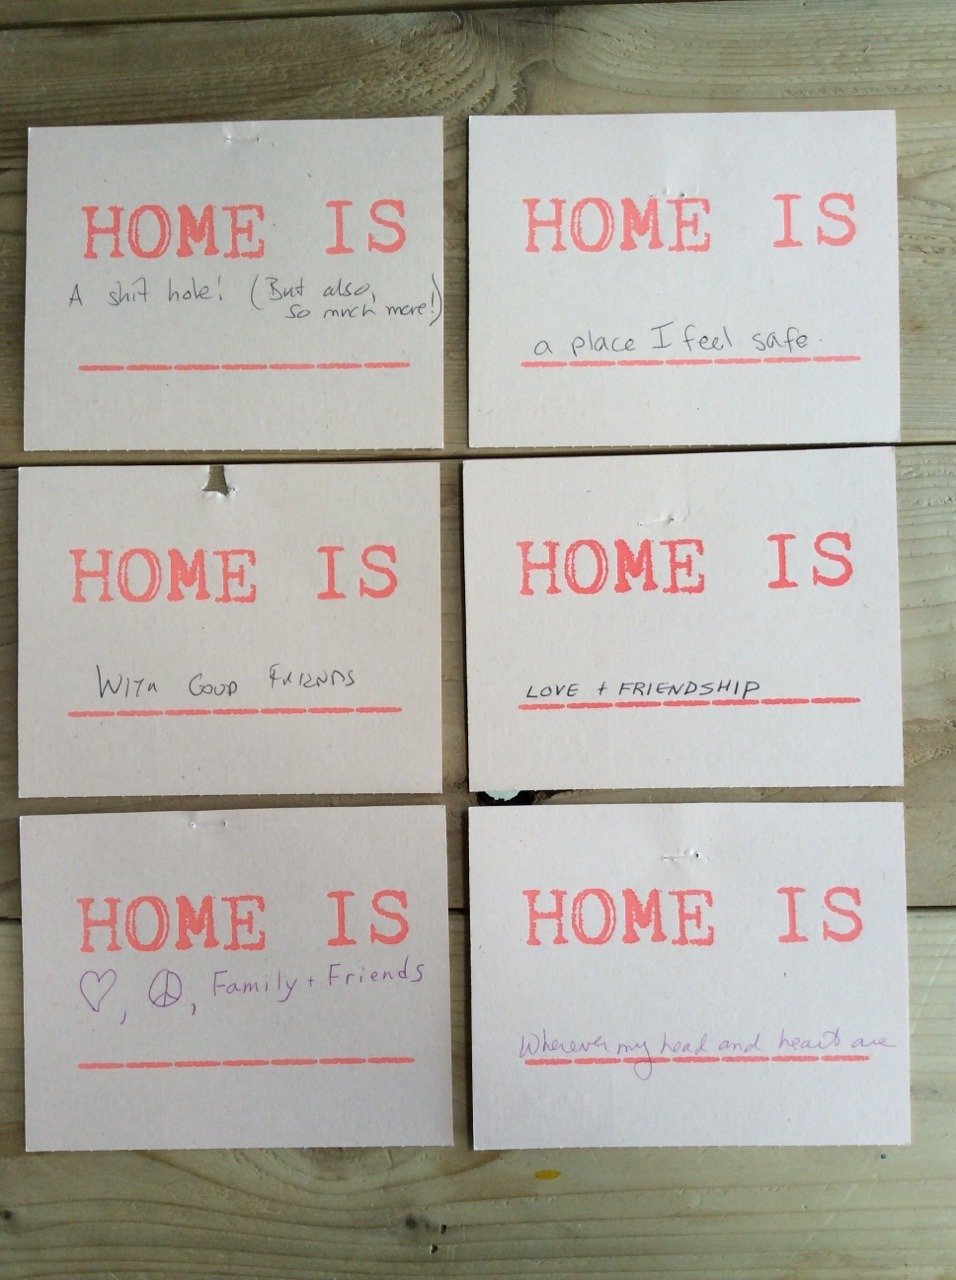 HOME IS
A shit hole! (But also,
so much more!)
HOME IS
a place I feel safe.
HOME IS
WITH GOOD FRIENDS
HOME IS
LOVE + FRIENDSHIP
HOME IS
♡, ☮, Family + Friends
HOME IS
Wherever my head and heart are